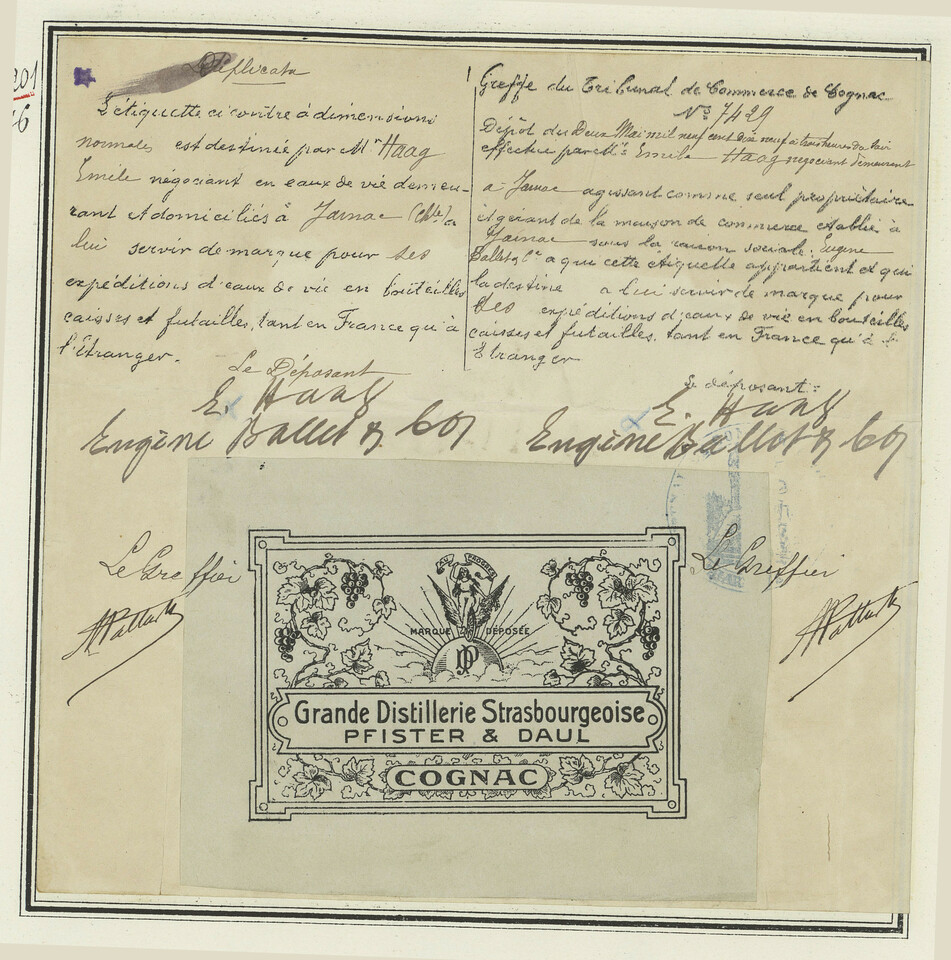 201
6
Duplicata
L'étiquette ci contre à dimensions
normales est destinée par Mr Haag
Emile négociant en eaux de vie demeu-
rant et domiciliés à Jarnac (Chte) a
lui servir de marque pour ses
expéditions d'eaux de vie en bouteilles
caisses et futailles, tant en France qu'à
l'Etranger.
Le Déposant
E. Haag
Eugène Ballet & Co
Le Greffier
Greffe du Tribunal de Commerce de Cognac
No 7429
Dépôt du Deux Mai mil neuf cent dix neuf à trois heures du soir
effectué par Mr Emile Haag négociant demeurant
à Jarnac agissant comme seul propriétaire
et gérant de la maison de commerce établie à
Jarnac sous la raison sociale. Eugène
Ballet & Ce a qui cette étiquette appartient et qui
la destine a lui servir de marque pour
ses expéditions d'eaux de vie en bouteilles
caisses et futailles, tant en France qu'à l'
Etranger
Le déposant:
E. Haag
Eugène Ballet & Co
Le Greffier
AU PROGRÈS
MARQUE DÉPOSÉE
Grande Distillerie Strasbourgeoise
PFISTER & DAUL
COGNAC